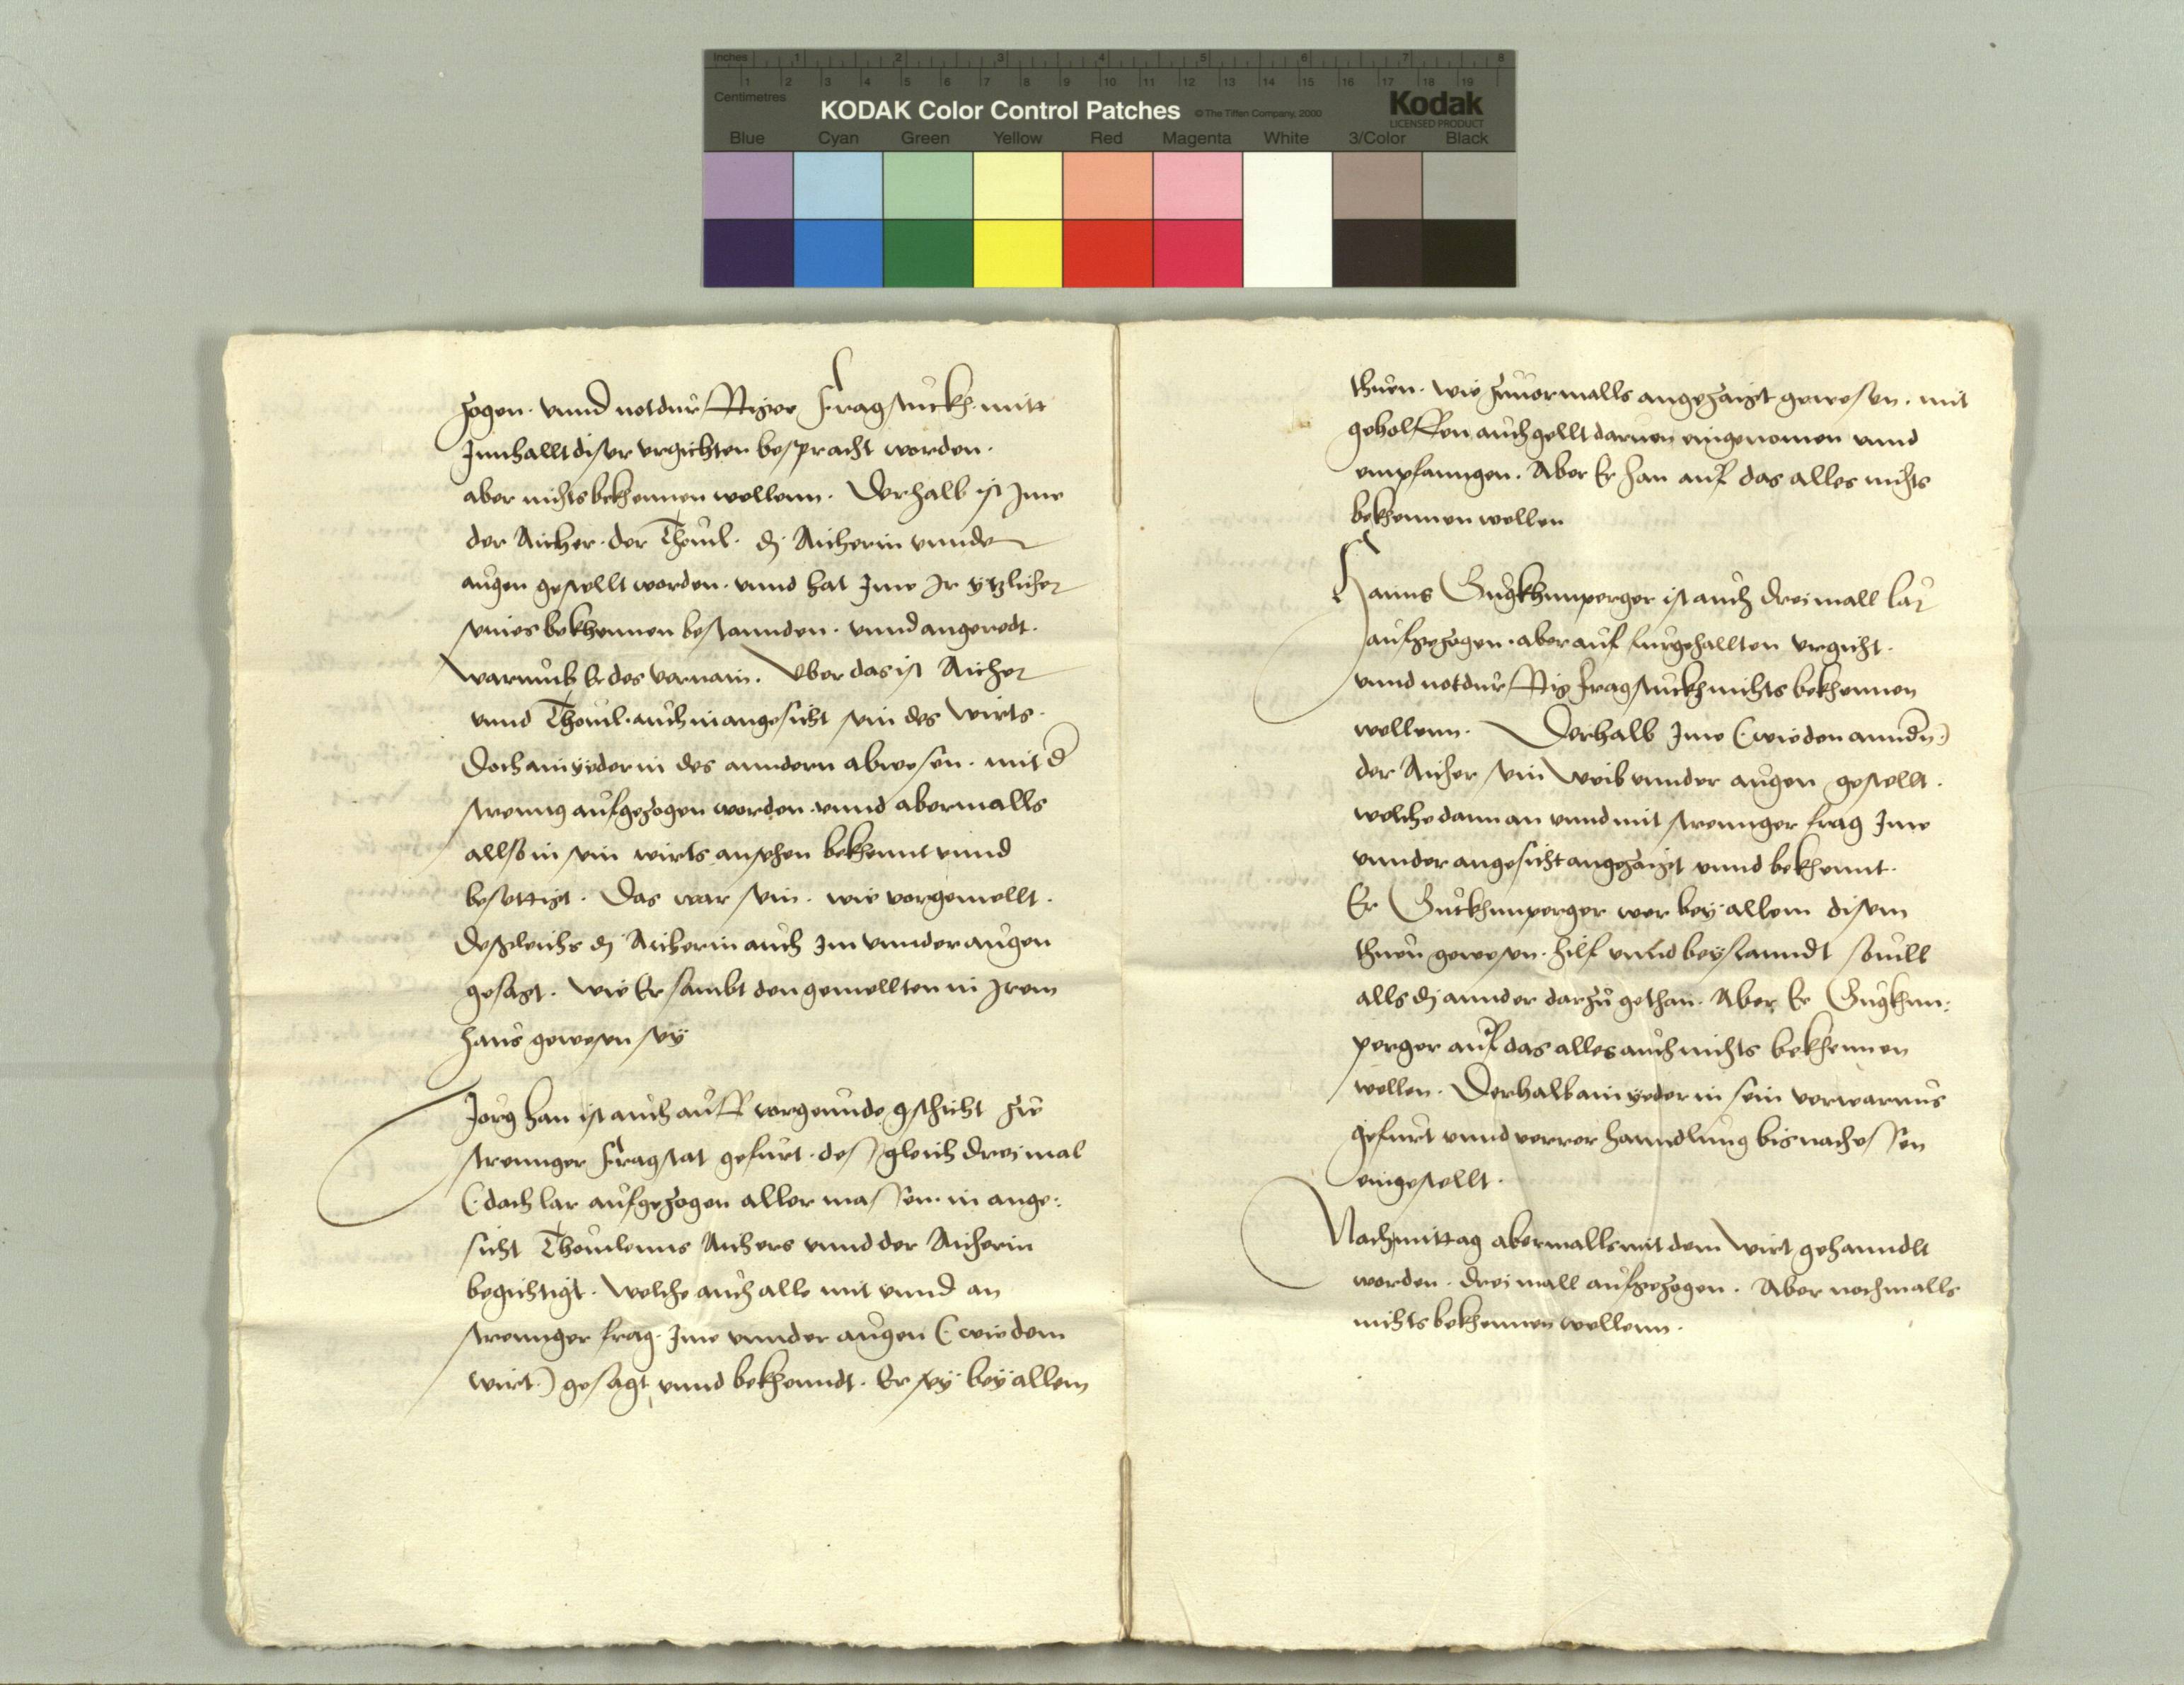 Inches 1 2 3 4 5 6 7 8
1 2 3 4 5 6 7 8 9 10 11 12 13 14 15 16 17 18 19
Centimetres
KODAK Color Control Patches © The Tiffen Company, 2000 Kodak
LICENSED PRODUCT
Blue Cyan Green Yellow Red Magenta White 3/Color Black
zogen. vnnd notdurfftiger fragstuckh mitt
Innhallt diser vrgichten bespracht worden.
aber nichts bekhennen wellenn. Derhalb ist Ime
der Aicher. der Theml. dj Aicherin vnnder
augen gestellt worden. vnnd hat Ime Ir ytzlicher
seines bekhennen bestannden. vnnd angeredt.
warumb Er des vernain. Vber das ist Aicher
vnnd Theml. auch in angesicht sein des Wirts.
Doch ain yeder in des anndern abwesen. mit d
strenng aufgezogen worden. vnnd abermalls
allso in sein wirts ansehen bekhennt vnnd
besettigt. Das war sein. wie vorgemellt.
Desgleichs dj Aicherin auch Im vnnder augen
gesagt. wie Er sambt den gemellten in Irem
haus gewesen sey
Jorg han ist auch auff vorgeunde gschicht zu
strennger fragstat gefurt. desgleich dreimal
(doch lar aufgezogen aller massen. in ange:
sicht Themlenns Aichers vnnd der Aicherin
begichtigt. welche auch alle mit vnnd an
strennger frag. Ime vnnder augen (wie dem
wirt) gesagt vnnd bekhenndt. Er sey bey allem
thuen. wie zuuormalls angezaigt gewesen. mit
geholffen auch gellt daruon eingenomen vnnd
empfanngen. Aber Er han auf das alles nichts
bekhennen wellen
Hanns Gugkhnnperger ist auch dreimall lar
aufgezogen. aber auf furgehallten vrgicht.
vnnd notdurfftig fragstuckh nichts bekhennen
wellenn. Derhalb Ime (wie den anndn)
der Aicher sein weib vnnder augen gestellt.
welche dann an vnnd mit strennger frag Ime
vnnder angesicht angezaigt vnnd bekhennt.
Er Guckhnnperger wer bey allem disem
thuen gewesen. hilf vnnd beystanndt souill
alls dj annder darzu gethan. Aber Er Gugkhnn:
perger auf das alles auch nichts bekhennen
wellen. Derhalb ain yeder in sein verwarnus
gefurt vnnd verrer hanndlung bis nachessen
eingestellt.
Nachmittag abermalls mit dem Wirt gehanndlt
worden. dreimall aufgezogen. Aber nochmalls
nichts bekhennen wellenn.